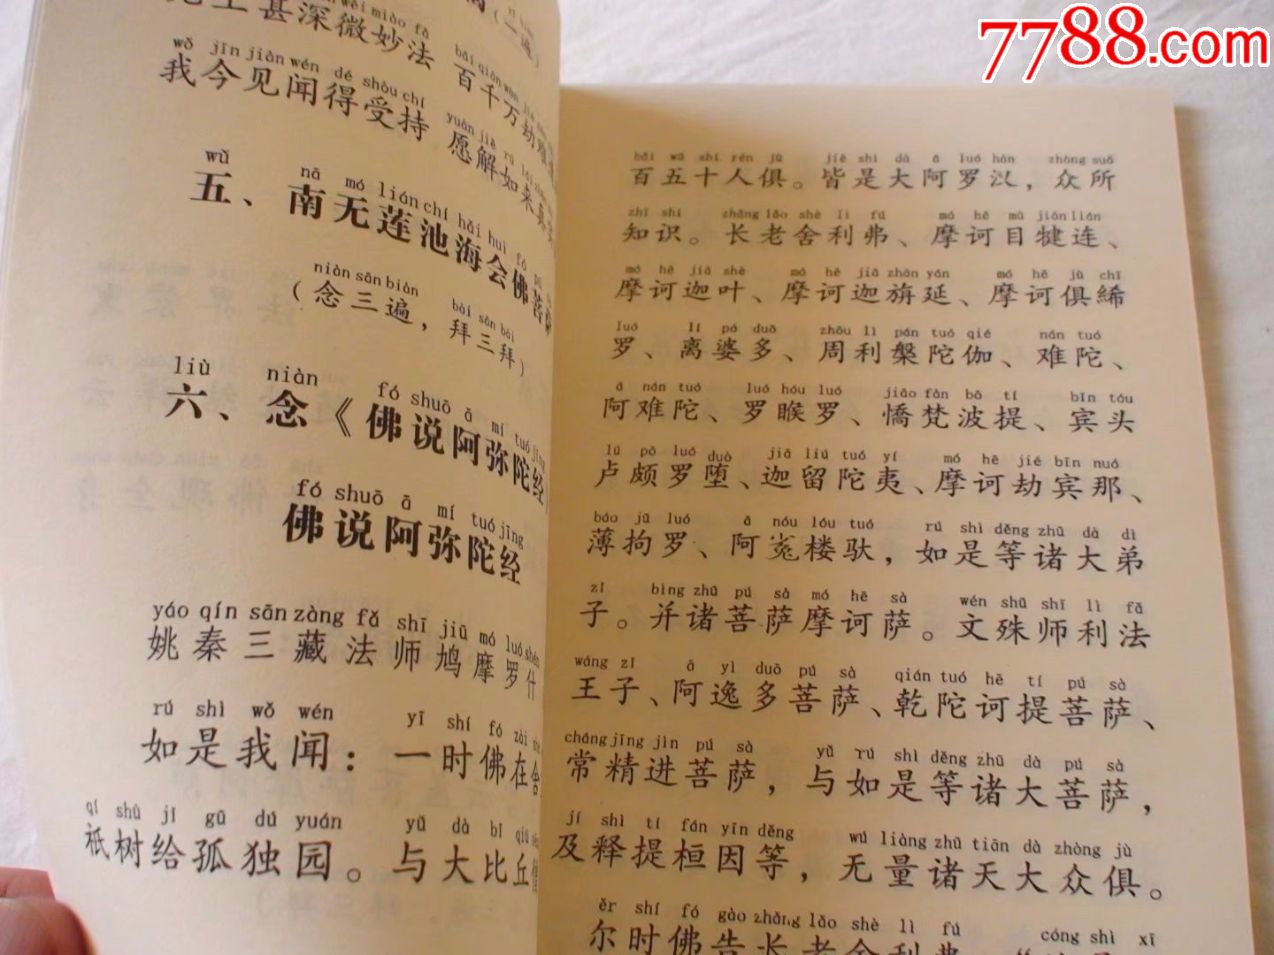 7788.com
wēi miào fǎ
上甚深微妙法 百千万劫难
wǒ jīn jiàn wén dé shòu chí yuàn jiě rú
我今见闻得受持 愿解如来真
wǔ nā mó lián chí hǎi huì fó
五、南无莲池海会佛菩
niàn sān biàn bài sān bài
(念三遍，拜三拜)
liù niàn fó shuō ā mí tuó jīng
六、念《佛说阿弥陀经》
fó shuō ā mí tuó jīng
佛说阿弥陀经
yáo qín sān zàng fǎ shī jiū mó luó shén
姚秦三藏法师鸠摩罗什
rú shì wǒ wén yī shí fó zài
如是我闻：一时佛在舍
qí shù jǐ gū dú yuán yǔ dà bǐ qiū
祇树给孤独园。与大比丘
bǎi wǔ shí rén jù jiē shì dà ā luó hàn zhòng suǒ
百五十人俱。皆是大阿罗汉，众所
zhī shí zhǎng lǎo shè lì fú mó hē mù jiān lián
知识。长老舍利弗、摩诃目犍连、
mó hē jiā shè mó hē jiā zhān yán mó hē jù chī
摩诃迦叶、摩诃迦旃延、摩诃俱絺
luó lí pó duō zhōu lì pán tuó qié nán tuó
罗、离婆多、周利槃陀伽、难陀、
ā nán tuó luó hóu luó jiāo fàn bō tí bīn tóu
阿难陀、罗睺罗、憍梵波提、宾头
lú pō luó duò jiā liú tuó yí mó hē jié bīn nuó
卢颇罗堕、迦留陀夷、摩诃劫宾那、
báo jū luó ā nóu lóu tuó rú shì děng zhū dà dì
薄拘罗、阿㝹楼驮，如是等诸大弟
zǐ bìng zhū pú sà mó hē sà wén shū shī lì fǎ
子。并诸菩萨摩诃萨。文殊师利法
wáng zǐ ā yì duō pú sà qián tuó hē tí pú sà
王子、阿逸多菩萨、乾陀诃提菩萨、
cháng jīng jìn pú sà yǔ rú shì děng zhū dà pú sà
常精进菩萨，与如是等诸大菩萨，
jí shì tí fán yīn děng wú liàng zhū tiān dà zhòng jù
及释提桓因等，无量诸天大众俱。
ěr shí fó gào zhǎng lǎo shè lì fú cóng shì xī
尔时佛告长老舍利弗